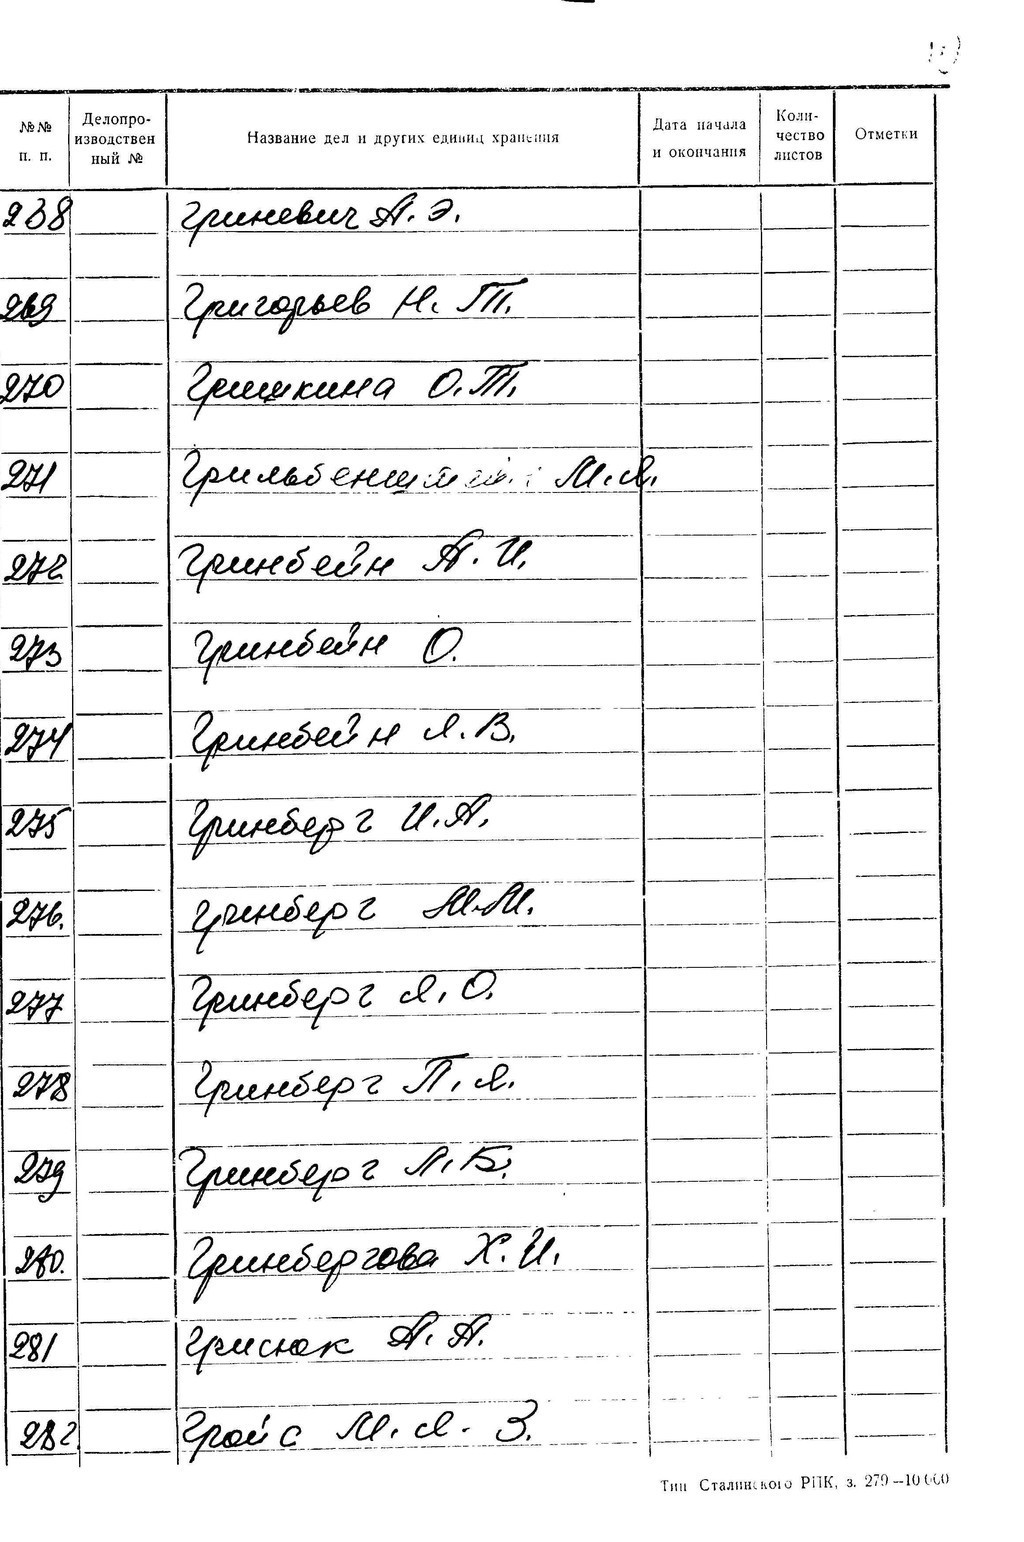 №№ п. п. Делопроизводствен ный № Название дел и других единиц хранения Дата начала и окончания Коли-чество листов Отметки
238 Гриневич А. Э.
269 Григорьев Н. Т.
270 Гришкина О. Т.
271 М. Я.
272 Гринбейн А. И.
273 Гринбейн О.
274 Гринбейн Я. В.
275 Гринберг И. А.
276. Гринберг М. М.
277 Гринберг Я. О.
278 Гринберг П. Я.
279 Гринберг Л. Б.
280. Гринбергова Х. И.
281 Гриснок А. А.
282 Гройс М. Я. - З.
Тип Сталинского РПК, з. 279—10 000